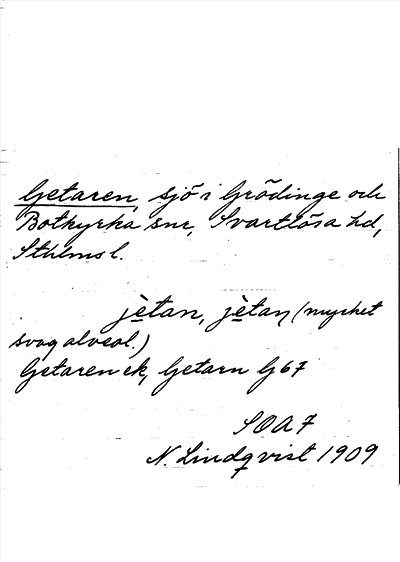 Getaren, sjö i Grödinge och
Botkyrka snr, Svartlösa hd,
Sthlms l.
jètan, jètaŋ (mycket
svag alveol.)
Getaren ek, Getarn G67
SOA7
N. Lindqvist 1909